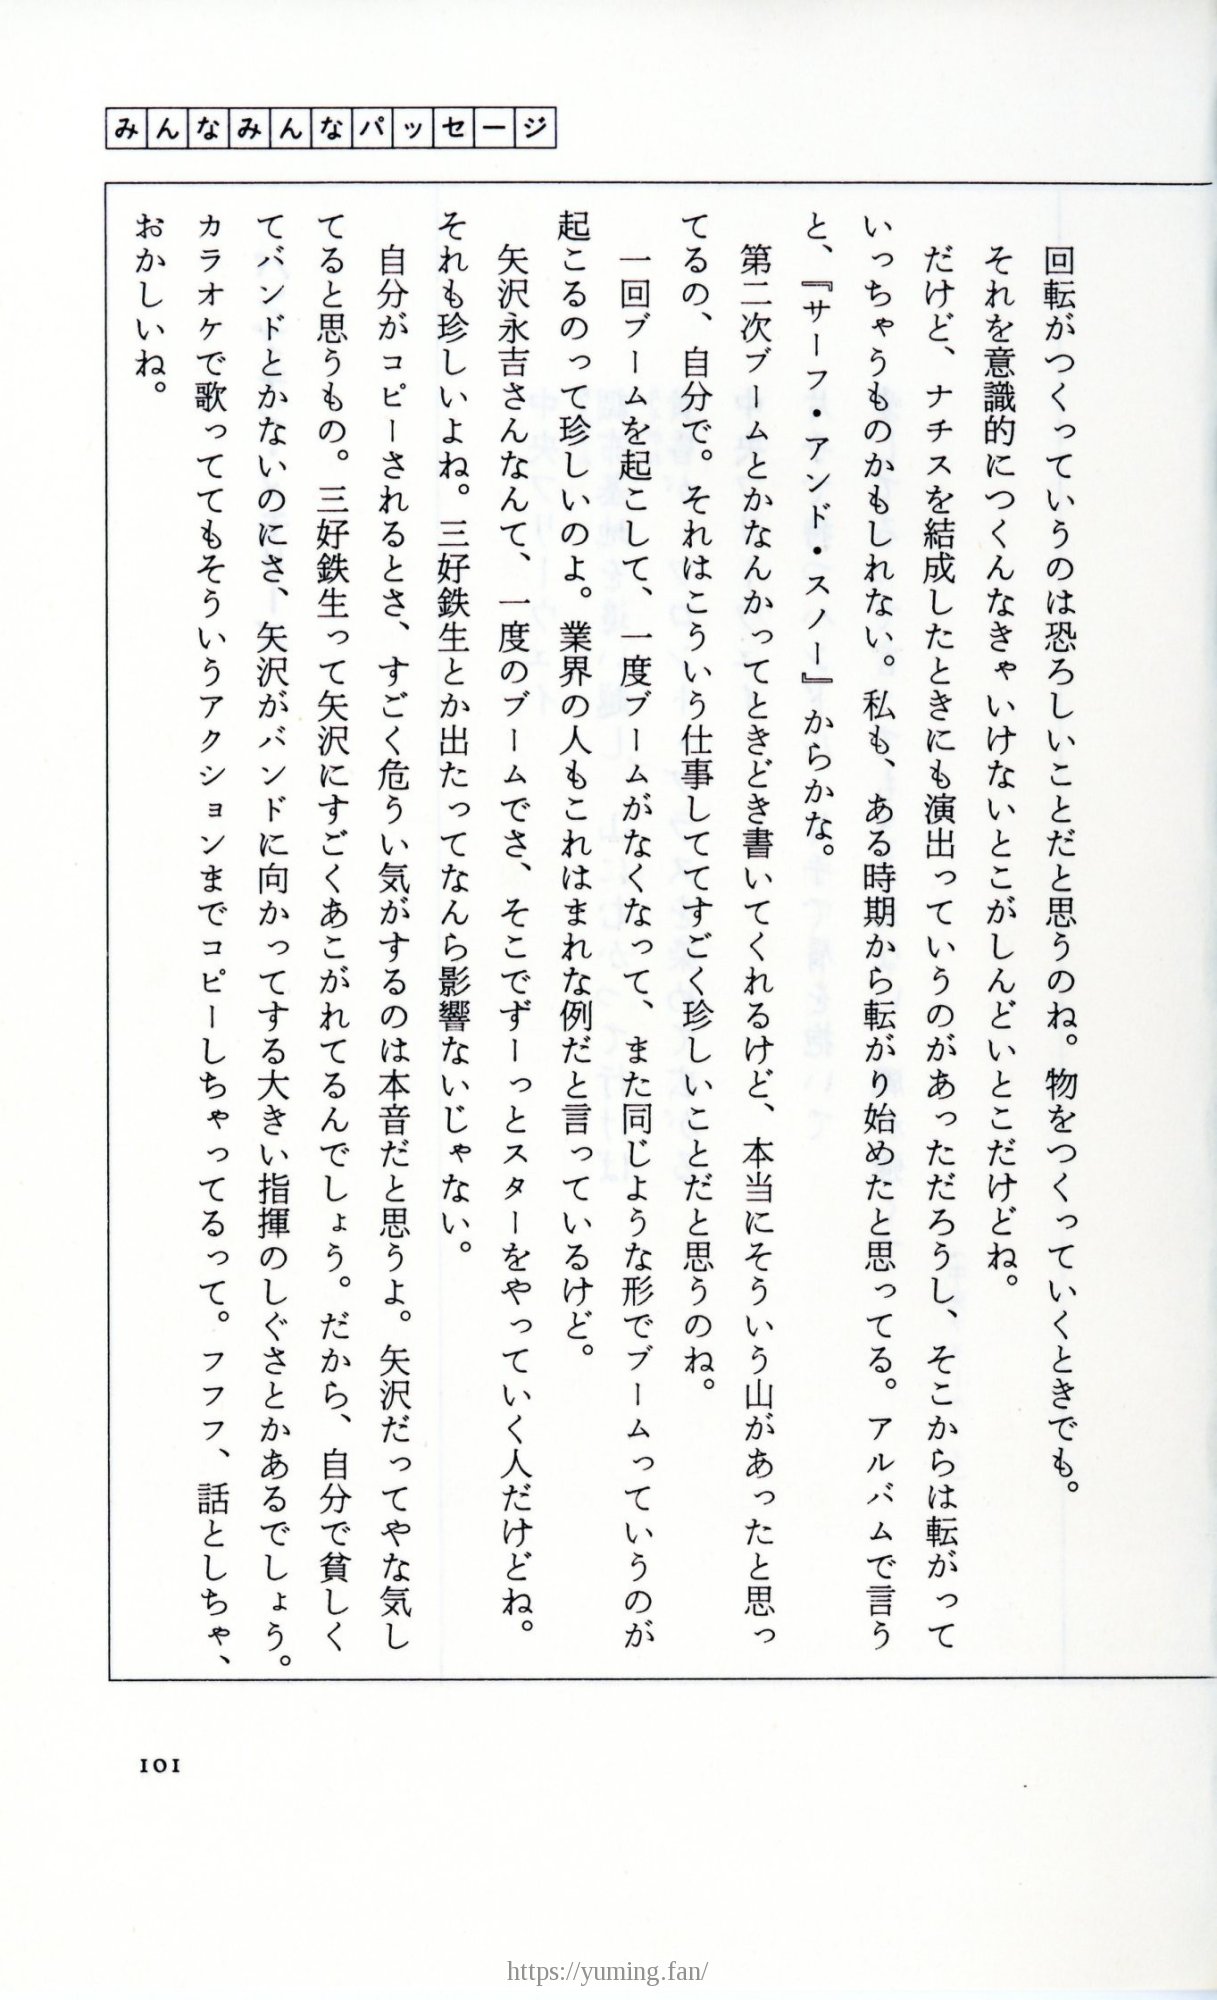 みんなみんなパッセージ
回転がつくっていうのは恐ろしいことだと思うのね。物をつくっていくときでも。
それを意識的につくんなきゃいけないとこがしんどいとこだけどね。
だけど、ナチスを結成したときにも演出っていうのがあっただろうし、そこからは転がって
いっちゃうものかもしれない。私も、ある時期から転がり始めたと思ってる。アルバムで言う
と、『サーフ・アンド・スノー』からかな。
第二次ブームとかなんかってときどき書いてくれるけど、本当にそういう山があったと思っ
てるの、自分で。それはこういう仕事しててすごく珍しいことだと思うのね。
一回ブームを起こして、一度ブームがなくなって、また同じような形でブームっていうのが
起こるのって珍しいのよ。業界の人もこれはまれな例だと言っているけど。
矢沢永吉さんなんて、一度のブームでさ、そこでずーっとスターをやっていく人だけどね。
それも珍しいよね。三好鉄生とか出たってなんら影響ないじゃない。
自分がコピーされるとさ、すごく危うい気がするのは本音だと思うよ。矢沢だってやな気し
てると思うもの。三好鉄生って矢沢にすごくあこがれてるんでしょう。だから、自分で貧しく
てバンドとかないのにさ、矢沢がバンドに向かってする大きい指揮のしぐさとかあるでしょう。
カラオケで歌っててもそういうアクションまでコピーしちゃってるって。フフフ、話としちゃ、
おかしいね。
101
https://yuming.fan/